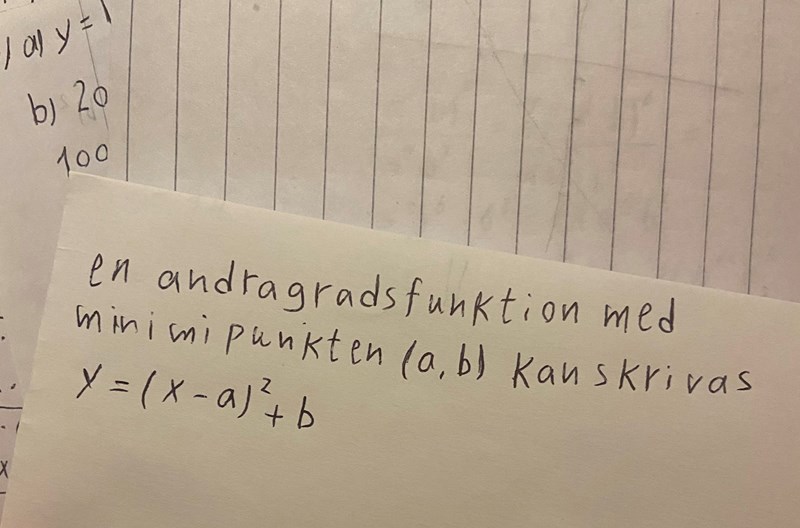 1 a) y = 1
b) 20
100
en andragradsfunktion med
minimipunkten (a, b) kan skrivas
y = (x - a)² + b
x